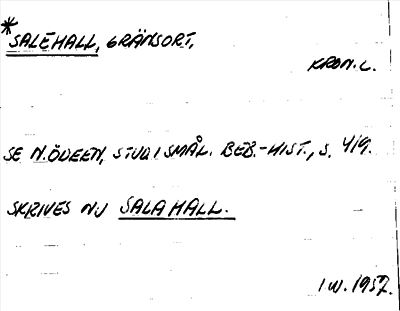 *SALEHALL, GRÄNSORT,
KRON. L.
SE N. ÖDEEN, STUD I SMÅL. BEB.-HIST., S. 419.
SKRIVES NU SALAHALL.
I W. 1957.